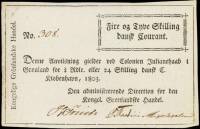 Kongelige Grönlandske Handel.
No. 308.
Fire og Tyve Skilling
dansk Courant.
Denne Anviisning gielder ved Colonien Julianehaab i
Grönland for ¼ Rdlr. eller 24 Skilling dansk C.
Kiöbenhavn, 1803.
Den administrerende Direction for den
Kongel. Grönlandske Handel.